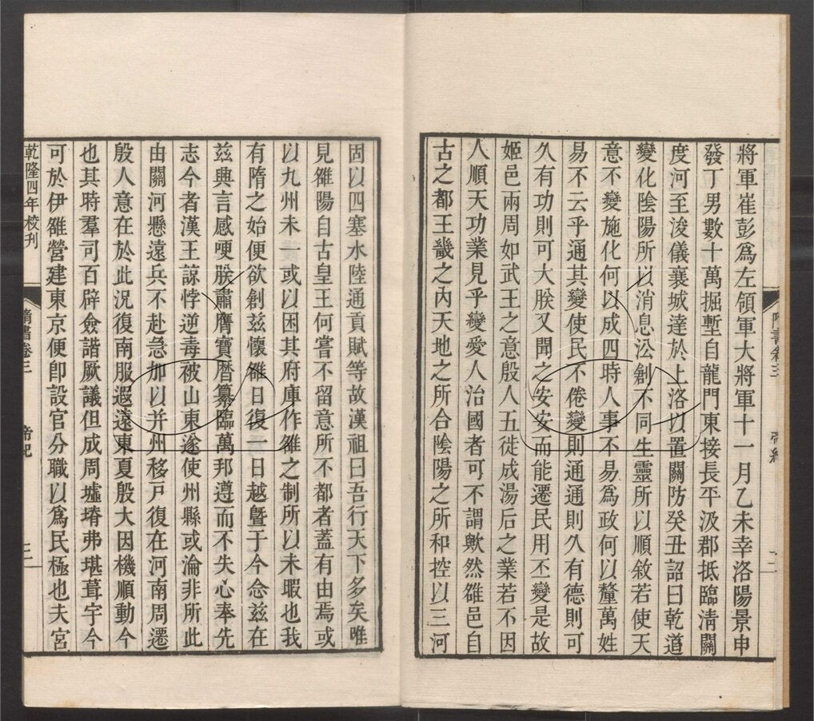 將軍崔彭爲左領軍大將軍十一月乙未幸洛陽景申
發丁男數十萬掘塹自龍門東接長平汲郡抵臨清關
度河至浚儀襄城達於上洛以置關防癸丑詔曰乾道
變化陰陽所以消息沿創不同生靈所以順敘若使天
意不變施化何以成四時人事不易爲政何以釐萬姓
易不云乎通其變使民不倦變則通通則久有德則可
久有功則可大朕又聞之安安而能遷民用丕變是故
姬邑兩周如武王之意殷人五徙成湯后之業若不因
人順天功業見乎變愛人治國者可不謂歟然雒邑自
古之都王畿之內天地之所合陰陽之所和控以三河
隋書卷三 帝紀 二
固以四塞水陸通貢賦等故漢祖曰吾行天下多矣唯
見雒陽自古皇王何嘗不留意所不都者蓋有由焉或
以九州未一或以困其府庫作雒之制所以未暇也我
有隋之始便欲創茲懷雒日復一日越暨于今念茲在
茲興言感哽朕肅膺寶曆纂臨萬邦遵而不失心奉先
志今者漢王諒悖逆毒被山東遂使州縣或淪非所此
由關河懸遠兵不赴急加以并州移戶復在河南周遷
殷人意在於此況復南服遐遠東夏殷大因機順動今
也其時羣司百辟僉諧厥議但成周墟塉弗堪葺宇今
可於伊雒營建東京便卽設官分職以爲民極也夫宮
乾隆四年校刊 隋書卷三 帝紀 三